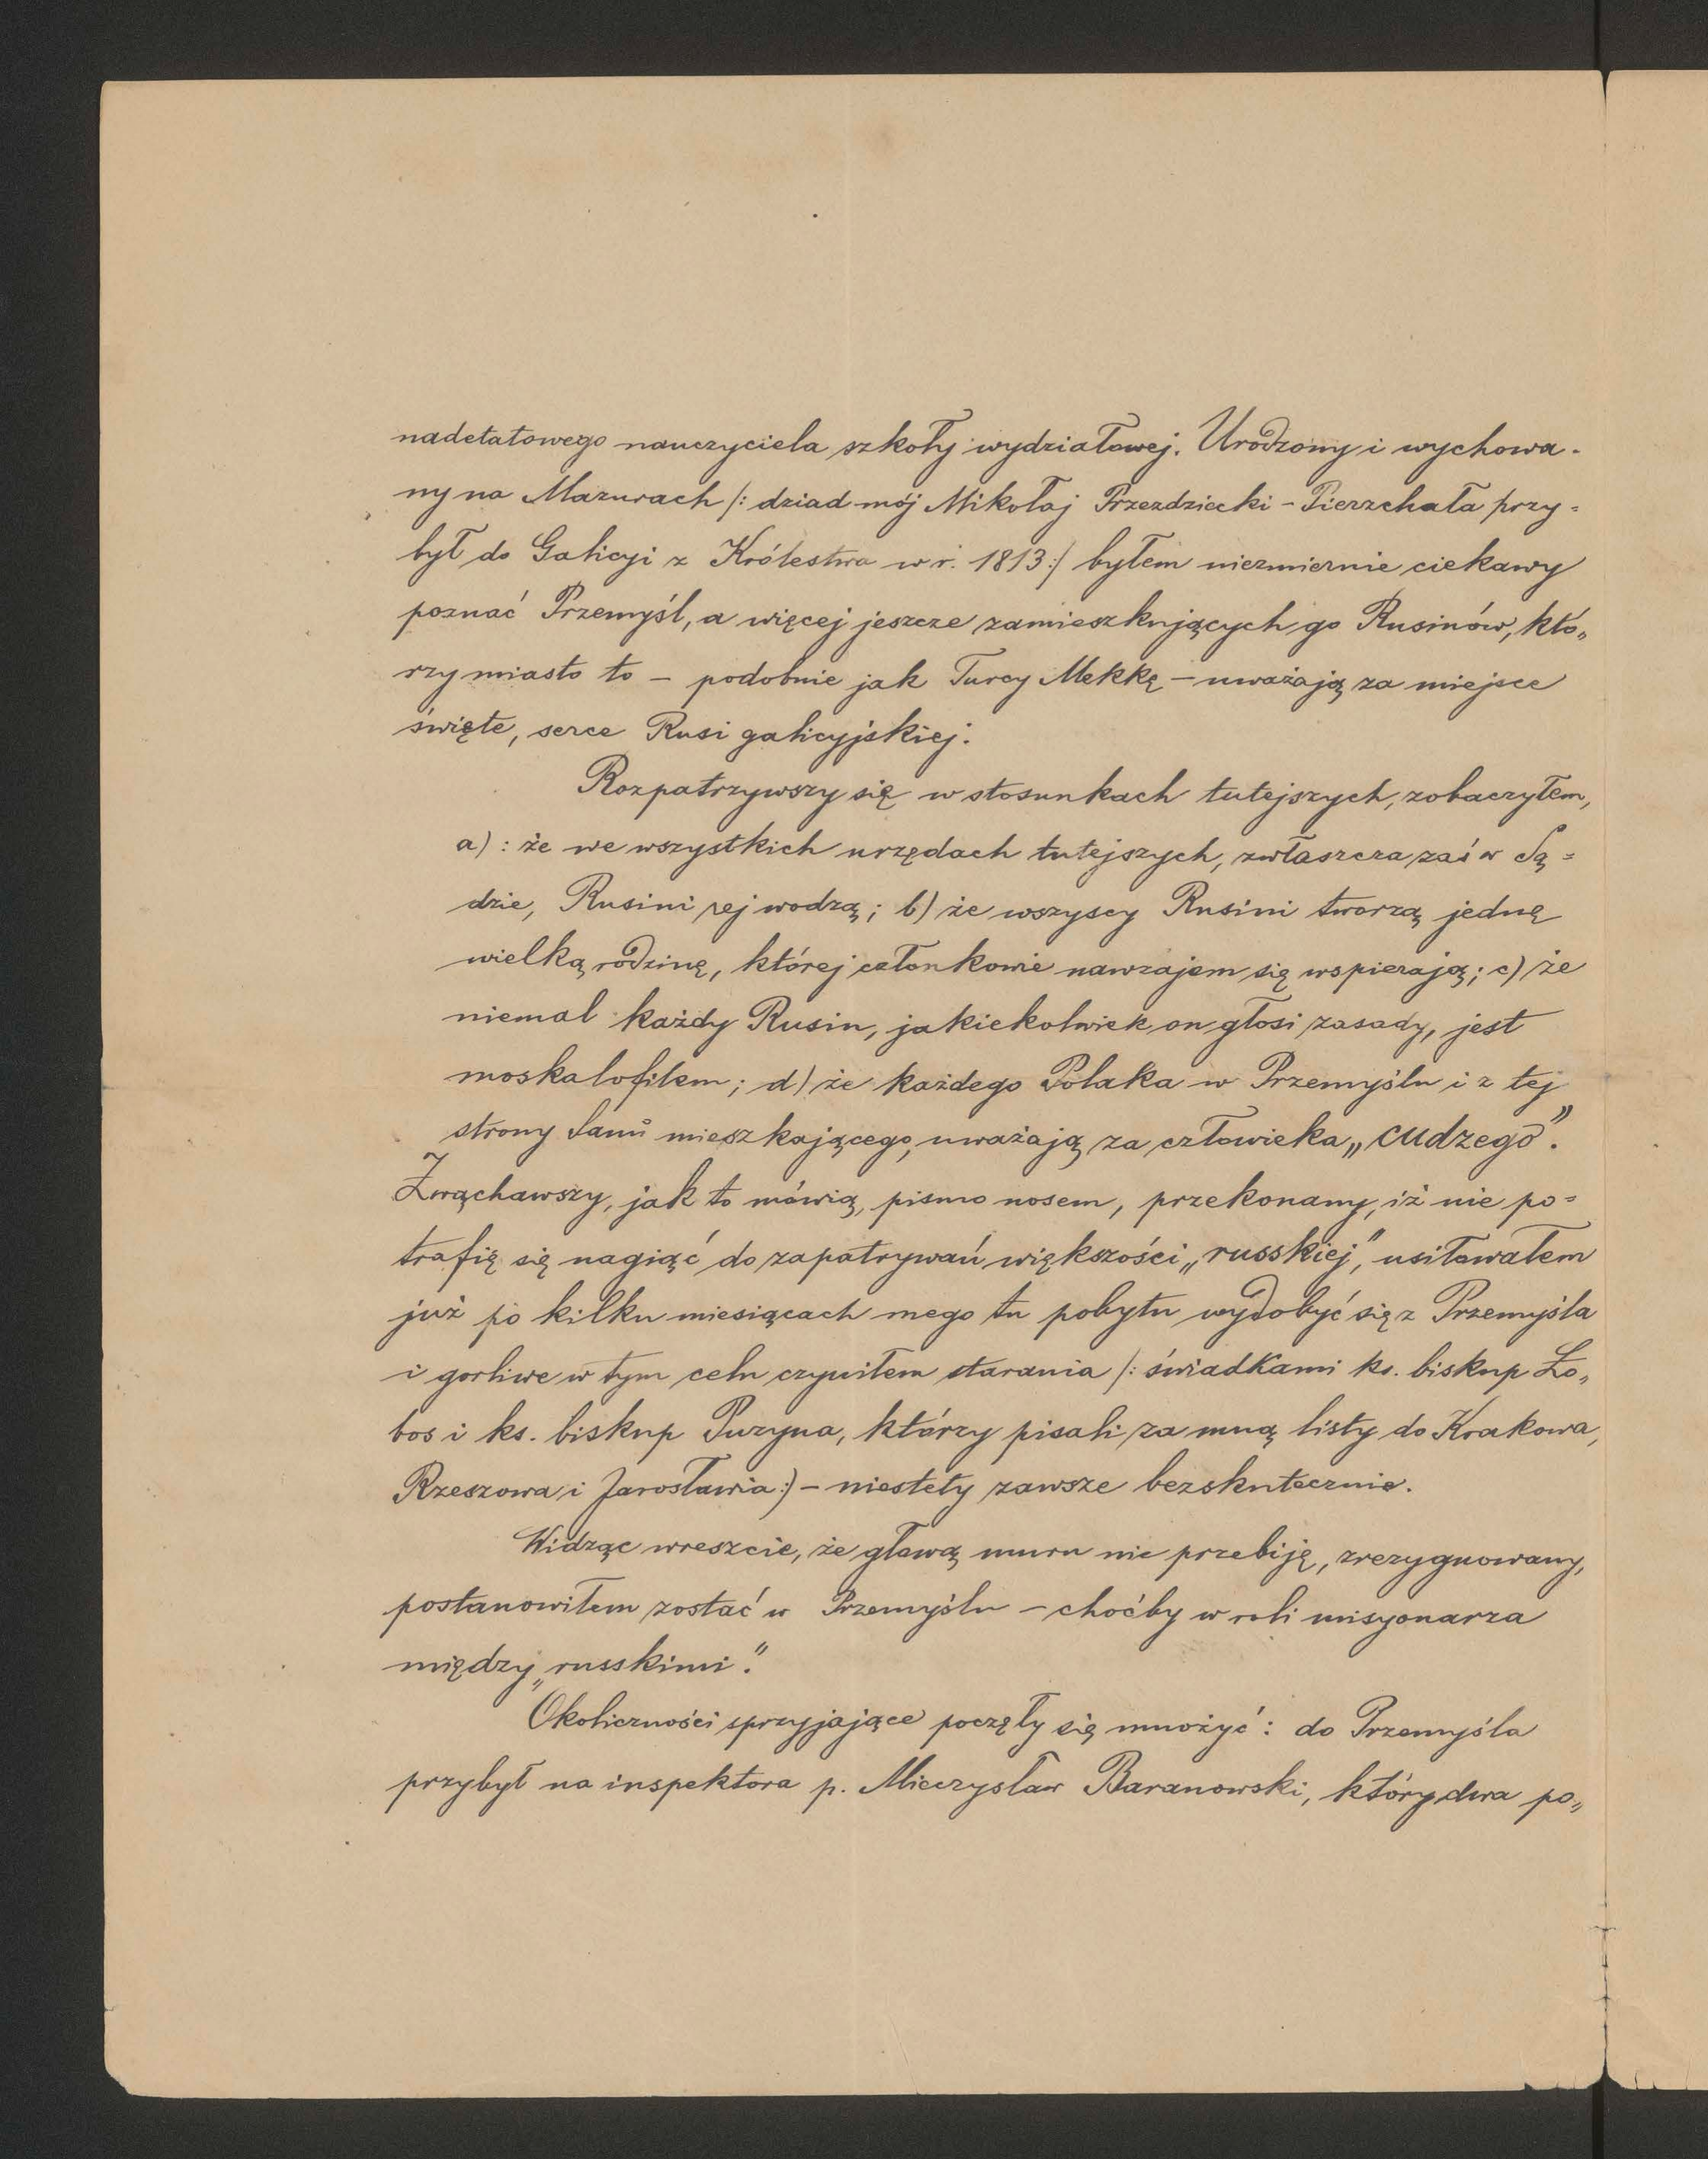 nadetatowego nauczyciela szkoły wydziałowej. Urodzony i wychowa-
ny na Mazurach /: dziad mój Mikołaj Przezdziecki - Pierzchała przy-
był do Galicyi z Królestwa w r. 1813 :/ byłem niezmiernie ciekawy
poznać Przemyśl, a więcej jeszcze zamieszkujących go Rusinów, któ„
rzy miasto to – podobnie jak Turcy Mekkę – uważają za miejsce
święte, serce Rusi galicyjskiej.
Rozpatrzywszy się w stosunkach tutejszych, zobaczyłem,
a) : że we wszystkich urzędach tutejszych, zwłaszcza zaś w Są=
dzie, Rusini rej wodzą; b) że wszyscy Rusini tworzą jedną
wielką rodzinę, której członkowie nawzajem się wspierają; c) że
niemal każdy Rusin, jakiekolwiek on głosi zasady, jest
moskalofilem; d) że każdego Polaka w Przemyślu i z tej
strony Sanu mieszkającego, uważają za człowieka „cudzego”.
Zwąchawszy, jak to mówią, pismo nosem, przekonany, iż nie po=
trafię się nagiąć do zapatrywań większości „russkiej”, usiłowałem
już po kilku miesiącach mego tu pobytu wydobyć się z Przemyśla
i gorliwe w tym celu czyniłem starania /: świadkami ks. biskup Ło„
bos i ks. biskup Puzyna, którzy pisali za mną listy do Krakowa,
Rzeszowa i Jarosławia :) – niestety zawsze bezskutecznie.
Widząc wreszcie, że głową muru nie przebiję, zrezygnowany,
postanowiłem zostać w Przemyślu – choćby w roli misyonarza
między „russkimi”.
Okoliczności sprzyjające poczęły się mnożyć : do Przemyśla
przybył na inspektora p. Mieczysław Baranowski, który dwa po„